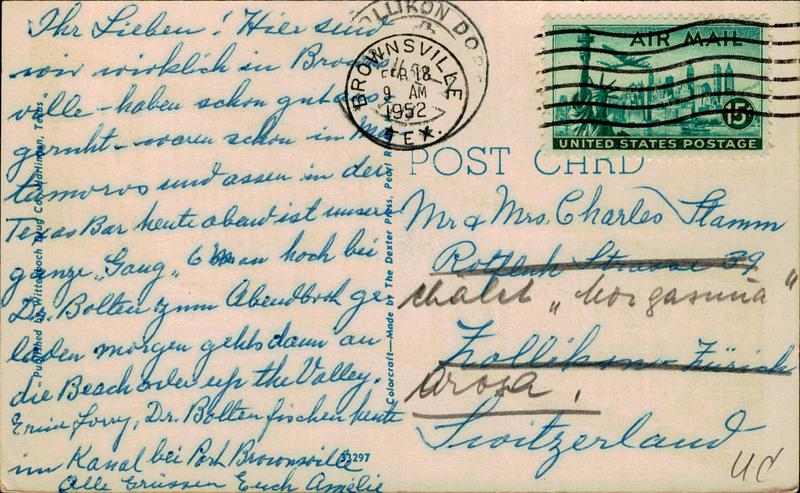 Ihr Lieben! Hier sind
wir wirklich in Browns
ville - haben schon gut aus-
geruht - waren schon in Ma
tamoros und assen in der
Texas Bar heute abend ist unsere
ganze „Gang„ 6 Mann hoch bei
Dr. Bolten zum Abendbrot ge
laden morgen gehts dann an
die Beach oder up the Valley.
Erine Lorry, Dr. Bolten fischen heute
im Kanal bei Port Brownsville
Alle Grüssen Euch Amelie
Published by Wittenbach Drug Co., Harlingen, Texas
Colorcraft—Made by The Dexter Press, Pearl R
33297
ZOLLIKON DORF
BROWNSVILLE
FEB 18
9 AM
1952
TEX.
AIR MAIL
15¢
UNITED STATES POSTAGE
POST CARD
Mr & Mrs. Charles Stamm
Strasse 39
chalet „ Morgasunna "
Zollikon - Zürich
Arosa.
Switzerland